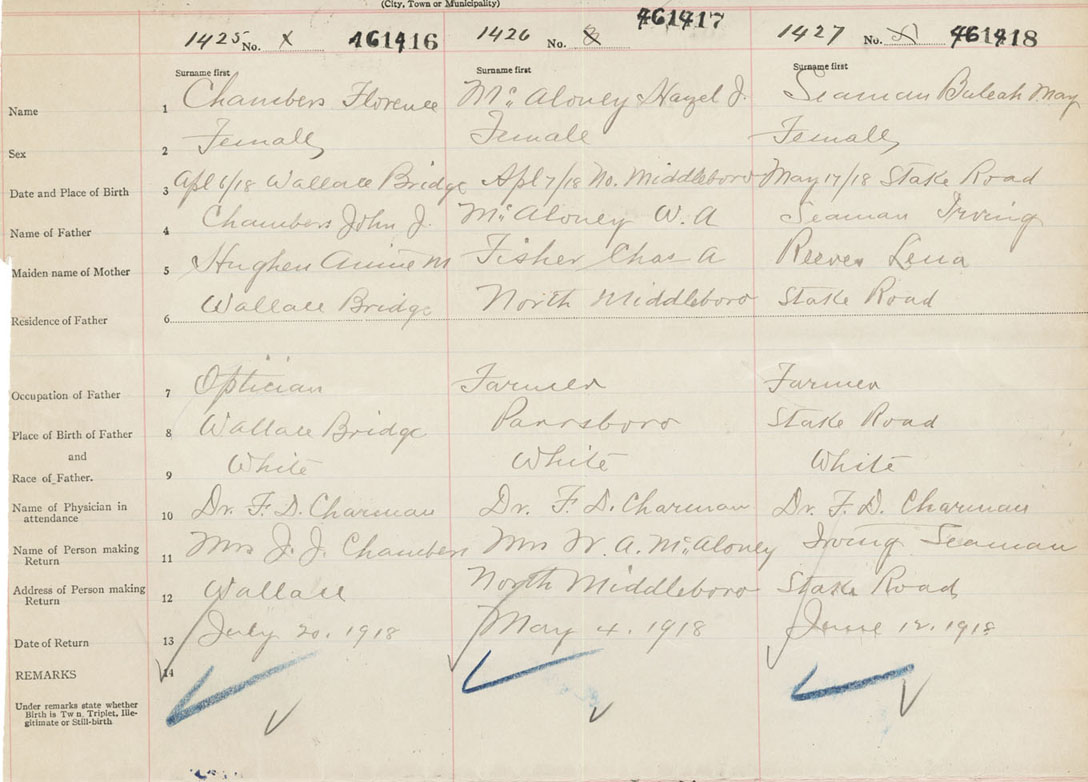 (City, Town or Municipality)
1425 No. X 461416 1426 No. 8 461417 1427 No. 461418
Surname first Surname first Surname first
Name 1 Chambers Florence Mc Aloney Hazel J. Seaman Buleah May
Sex 2 Female Female Female
Date and Place of Birth 3 Apl 6/18 Wallace Bridge Apl 7/18 No. Middleboro May 17/18 Stake Road
Name of Father 4 Chambers John J. Mc Aloney W. A Seaman Irving
Maiden name of Mother 5 Hughen Annie M Fisher Chas A Reeves Lena
Residence of Father 6 Wallace Bridge North Middleboro Stake Road
Occupation of Father 7 Optician Farmer Farmer
Place of Birth of Father 8 Wallace Bridge Parrsboro Stake Road
and
Race of Father. 9 White White White
Name of Physician in
attendance 10 Dr. F. D. Charman Dr. F. D. Charman Dr. F. D. Charman
Name of Person making
Return 11 Mrs J. J. Chambers Mrs W. A. McAloney Irving Seaman
Address of Person making
Return 12 Wallace North Middleboro Stake Road
Date of Return 13 July 20, 1918 May 4. 1918 June 12. 1918
REMARKS 14
Under remarks state whether
Birth is Tw n Triplet, Ille-
gitimate or Still-birth